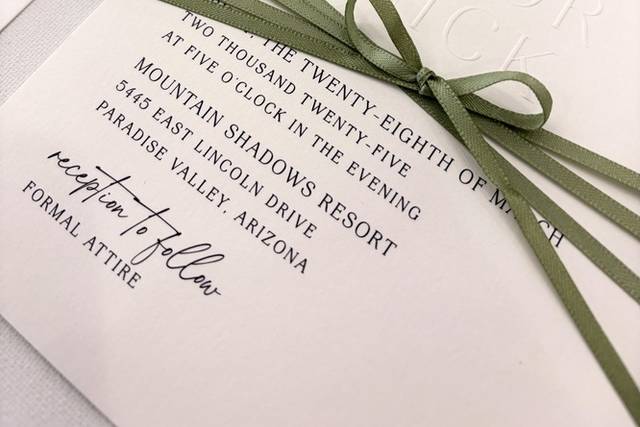 OR
ICK
THE TWENTY-EIGHTH OF MARCH
TWO THOUSAND TWENTY-FIVE
AT FIVE O'CLOCK IN THE EVENING
MOUNTAIN SHADOWS RESORT
5445 EAST LINCOLN DRIVE
PARADISE VALLEY, ARIZONA
reception to follow
FORMAL ATTIRE